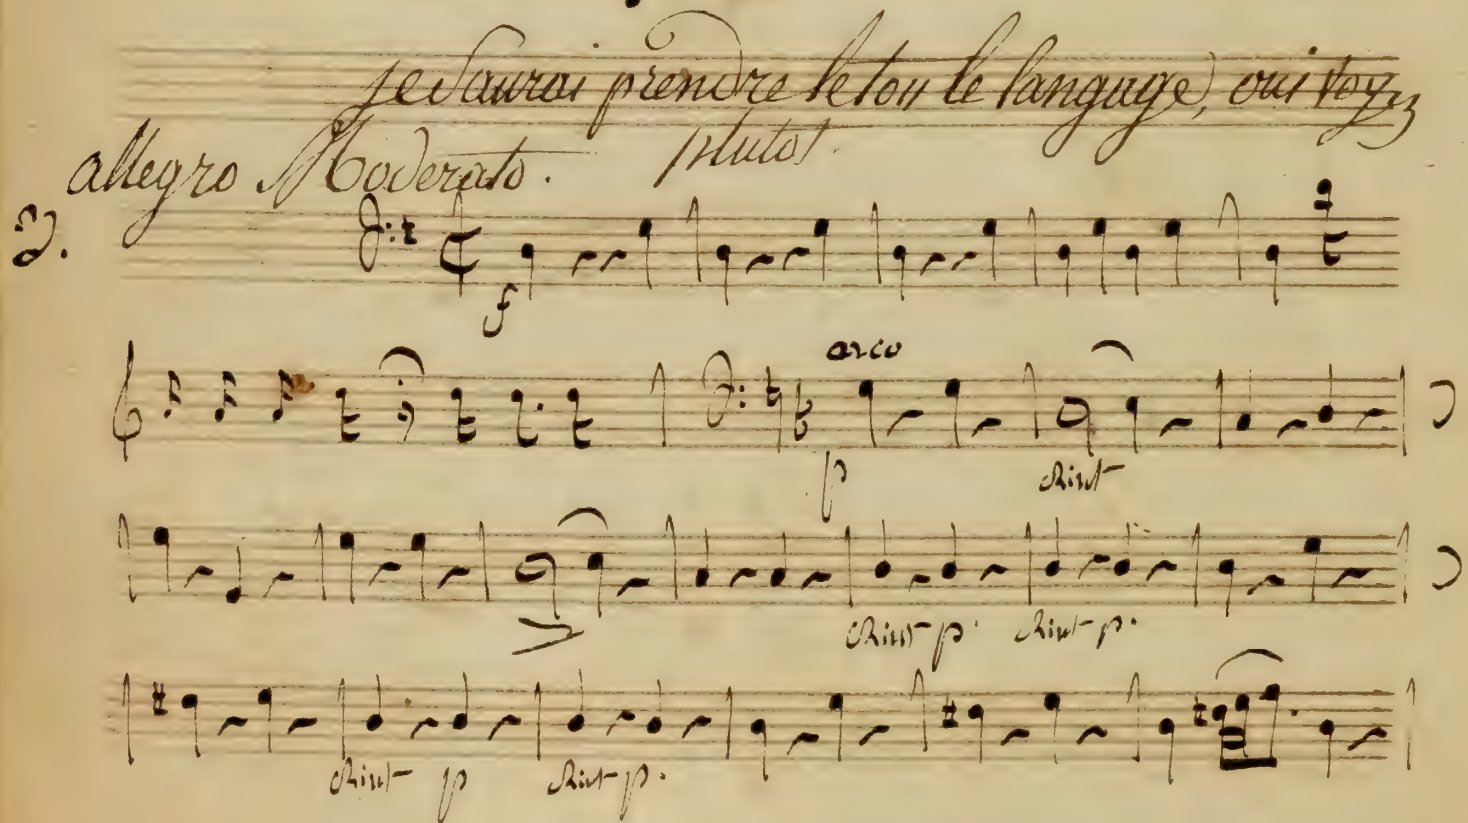 je saurai prendre le ton le langage, oui voyez
plutot.
allegro Moderato.
2.
f
arco
p
rinf
rinf p. rinf p.
rinf p rinf p.